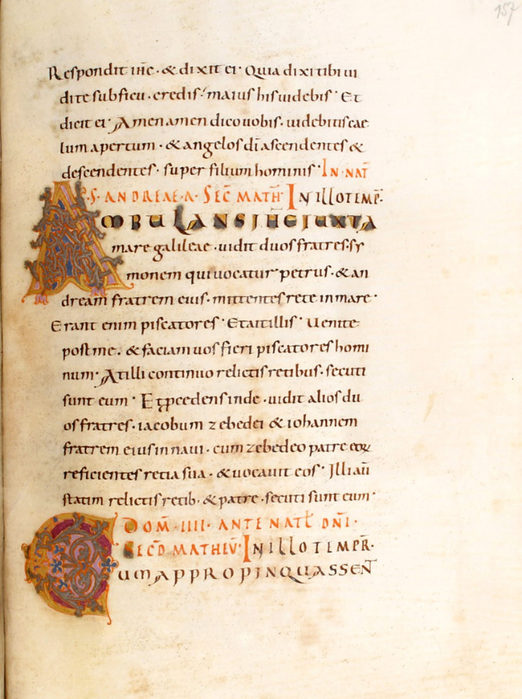 157
Respondit ihc · & dixit ei · Quia dixi tibi ui
di te sub ficu · credis · maius his uidebis · Et
dicit ei · Amen amen dico uobis · uidebitis cae
lum apertum · & angelos di ascendentes &
descendentes · super filium hominis · IN · NAT
S · ANDREAE · A · SEC MATH · IN ILLO TEMP̄R ·
AMBULANS IHC IUXTA
mare galileae · uidit duos fratres · sy
monem qui uocatur petrus · & an
dream fratrem eius · mittentes rete in mare ·
Erant enim piscatores · Et ait illis · Uenite
post me · & faciam uos fieri piscatores homi
num · At illi continuo relictis retibus · secuti
sunt eum · Et p̄cedens inde · uidit alios du
os fratres · iacobum zebedei & iohannem
fratrem eius in naui · cum zebedeo patre eoꝝ
reficientes retia sua · & uocauit eos · Illi aū
statim relictis retib · & patre · secuti sunt eum ·
DOM̄ · IIII · ANTE NATL̄ DN̄I ·
SECD MATHEŪ · IN ILLO TEMPR̄ ·
CUM APPROPINQUASSENT